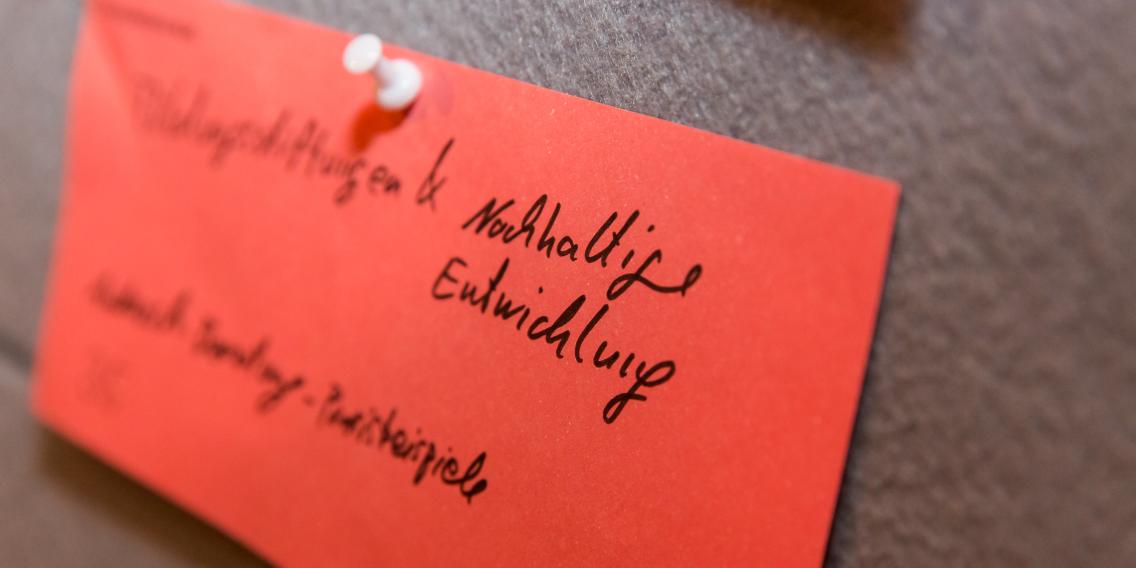 Bildungsstiftungen & Nachhaltige
Entwicklung
- Praxisbeispiele